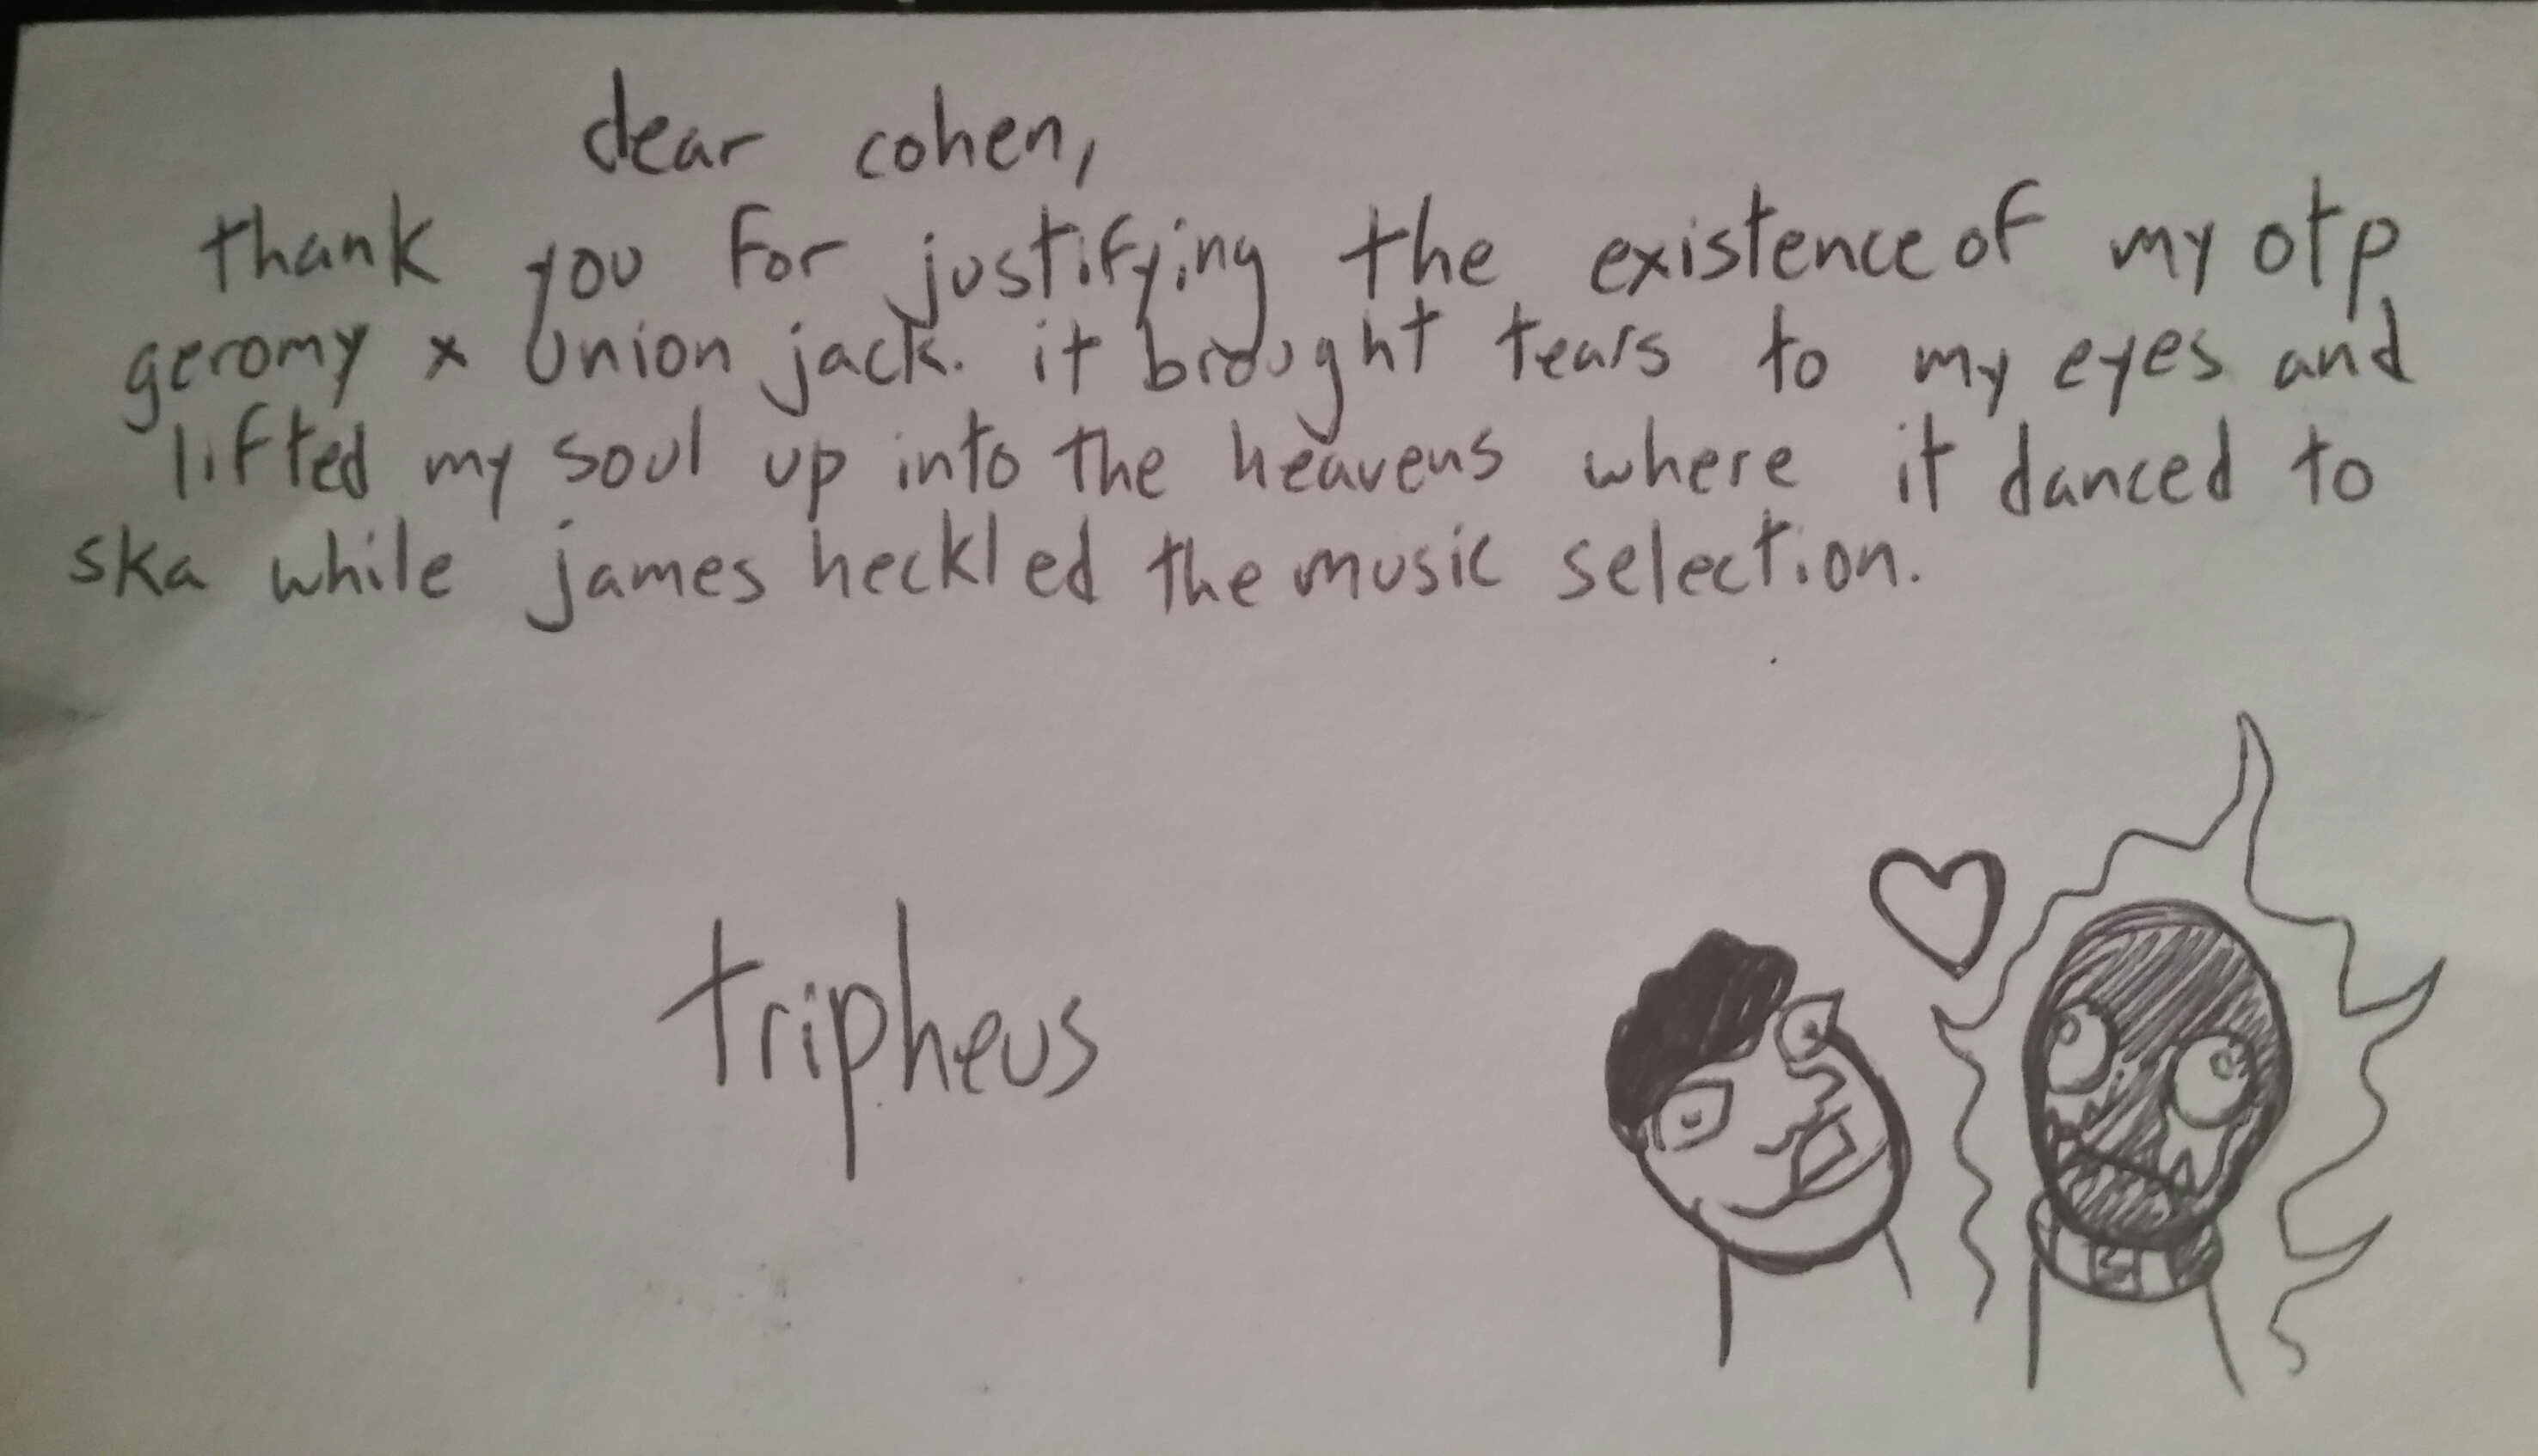 dear cohen,
thank you for justifying the existence of my otp
geromy x union jack. it brought tears to my eyes and
lifted my soul up into the heavens where it danced to
ska while james heckled the music selection.
tripheus